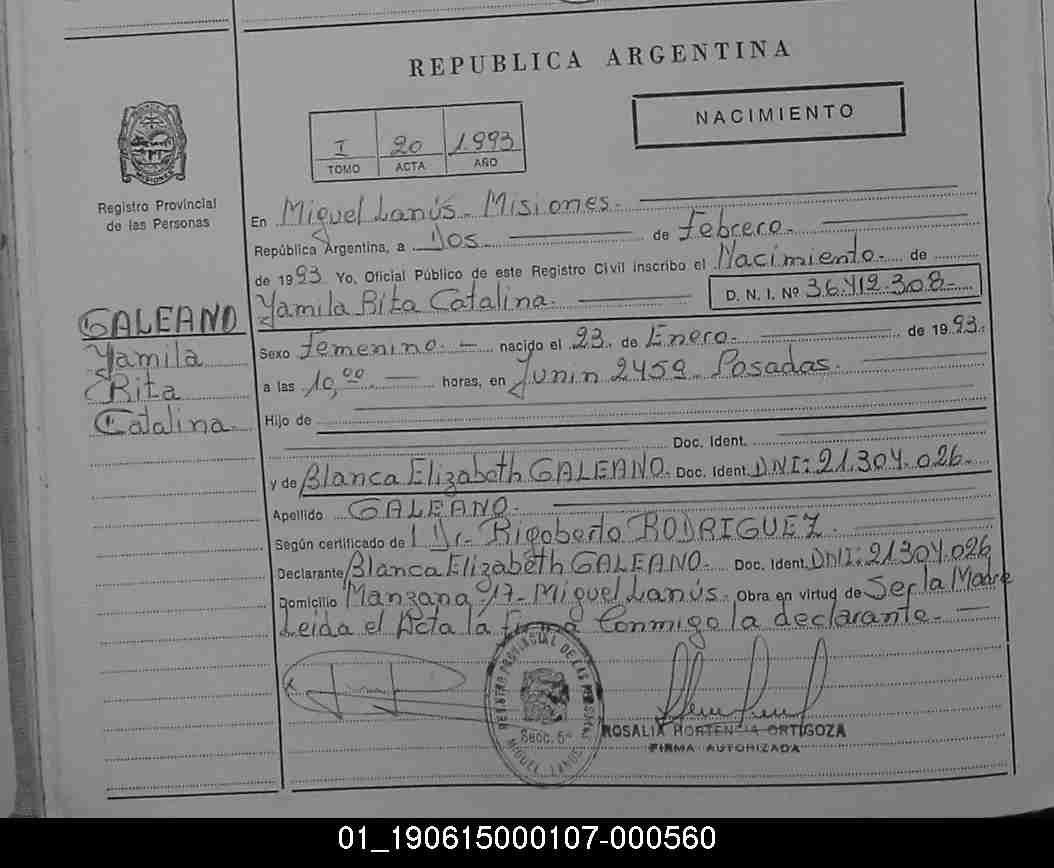 REPUBLICA ARGENTINA
NACIMIENTO
I 20 1.993
TOMO ACTA AÑO
Registro Provincial
de las Personas
En Miguel Lanús - Misiones.
República Argentina, a Dos de Febrero.
de 1993 Yo, Oficial Público de este Registro Civil inscribo el Nacimiento. de
Yamila Rita Catalina. D. N. I. Nº 36.412.308
GALEANO
Yamila
Rita
Catalina.
Sexo Femenino. nacido el 23 de Enero. de 1993.
a las 10,00 horas, en Junin 2459 Posadas.
Hijo de
Doc. Ident.
y de Blanca Elizabeth GALEANO. Doc. Ident. DNI: 21.304.026.
Apellido GALEANO.
Según certificado de Dr. Rigoberto RODRIGUEZ.
Declarante Blanca Elizabeth GALEANO. Doc. Ident. DNI: 21304.026
Domicilio Manzana 17 - Miguel Lanús. Obra en virtud de Ser la Madre
Leida el Acta la firma Conmigo la declarante.
REGISTRO PROVINCIAL DE LAS PERSONAS
Secc. 5ª
MIGUEL LANUS
ROSALIA HORTENCIA ORTIGOZA
FIRMA AUTORIZADA
01_190615000107-000560